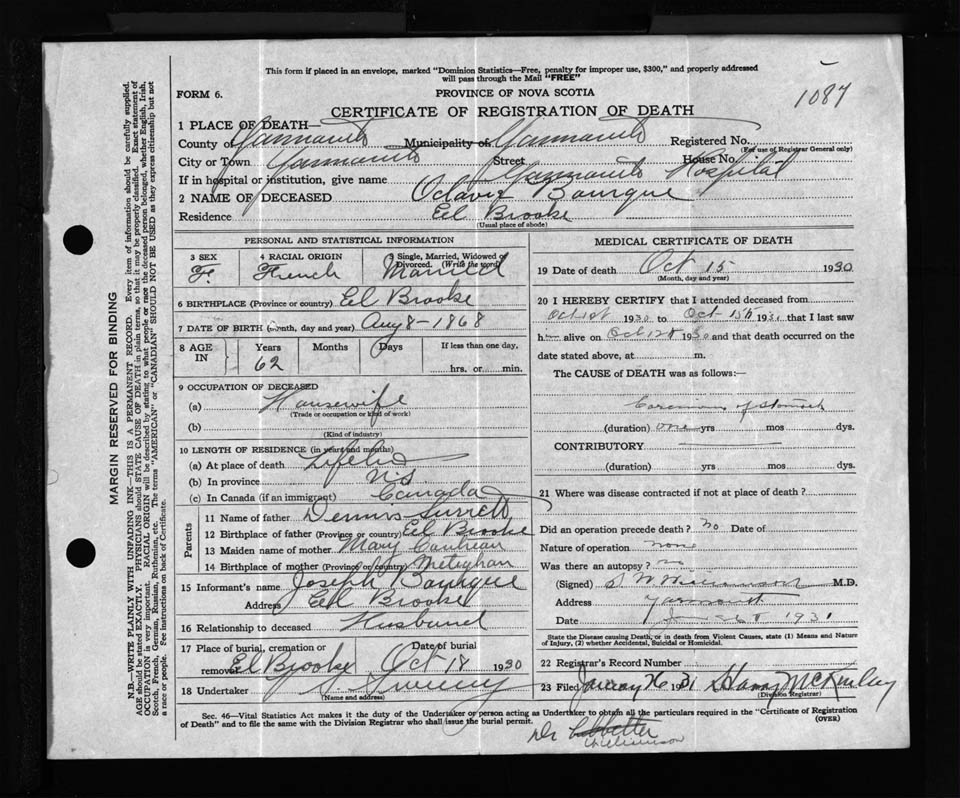 This form if placed in an envelope, marked "Dominion Statistics—Free, penalty for improper use, $300," and properly addressed
will pass through the Mail "FREE"
FORM 6.
PROVINCE OF NOVA SCOTIA
1087
CERTIFICATE OF REGISTRATION OF DEATH
1 PLACE OF DEATH—
County of Yarmouth Municipality of Yarmouth Registered No.
(For use of Registrar General only)
City or Town Yarmouth Street House No.
If in hospital or institution, give name Yarmouth Hospital
2 NAME OF DECEASED Octavie Bourque
Residence Eel Brooke
(Usual place of abode)
PERSONAL AND STATISTICAL INFORMATION
3 SEX F. 4 RACIAL ORIGIN French 5 Single, Married, Widowed or Divorced. (Write the word) Married
6 BIRTHPLACE (Province or country) Eel Brooke
7 DATE OF BIRTH (Month, day and year) Aug 8 - 1868
8 AGE IN Years 62 Months Days If less than one day, hrs. or min.
9 OCCUPATION OF DECEASED
(a) Housewife
(Trade or occupation or kind of work)
(b)
(Kind of industry)
10 LENGTH OF RESIDENCE (in years and months)
(a) At place of death
(b) In province NS
(c) In Canada (if an immigrant) Canada
Parents
11 Name of father Dennis Surrett
12 Birthplace of father (Province or country) Eel Brooke
13 Maiden name of mother Mary
14 Birthplace of mother (Province or country) Meteghan
15 Informant's name Joseph Bourque
Address Eel Brooke
16 Relationship to deceased Husband
17 Place of burial, cremation or removal Eel Brooke Date of burial Oct 18 1930
18 Undertaker Sweeny
(Name and address)
MEDICAL CERTIFICATE OF DEATH
19 Date of death Oct 15 1930
(Month, day and year)
20 I HEREBY CERTIFY that I attended deceased from
Oct 1st 1930 to Oct 15th 1930 that I last saw
h alive on Oct 1930 and that death occurred on the
date stated above, at m.
The CAUSE of DEATH was as follows:—
Carcinoma of stomach
(duration) one yrs mos dys.
CONTRIBUTORY
(duration) yrs mos dys.
21 Where was disease contracted if not at place of death?
Did an operation precede death? no Date of
Nature of operation none
Was there an autopsy? no
(Signed) S W Williamson M.D.
Address Yarmouth
Date Jan 1931
State the Disease causing Death, or in death from Violent Causes, state (1) Means and Nature
of Injury, (2) whether Accidental, Suicidal or Homicidal.
22 Registrar's Record Number
23 Filed January 1931 Harry McKinlay
(Division Registrar)
Sec. 46—Vital Statistics Act makes it the duty of the Undertaker or person acting as Undertaker to obtain all the particulars required in the "Certificate of Registration
of Death" and to file the same with the Division Registrar who shall issue the burial permit.
(OVER)
Dr
Williamson
MARGIN RESERVED FOR BINDING
N.B.—WRITE PLAINLY WITH UNFADING INK—THIS IS A PERMANENT RECORD. Every item of information should be carefully supplied.
AGE should be stated EXACTLY. PHYSICIANS should STATE CAUSE OF DEATH in plain terms, so that it may be properly classified. Exact statement of
OCCUPATION is very important. RACIAL ORIGIN will be described by stating to what people or race the deceased person belonged, whether English, Irish,
Scotch, French, German, Russian, Ruthenian, etc. The terms "AMERICAN" or "CANADIAN" SHOULD NOT BE USED as they express citizenship but not
a race or people. See instructions on back of Certificate.